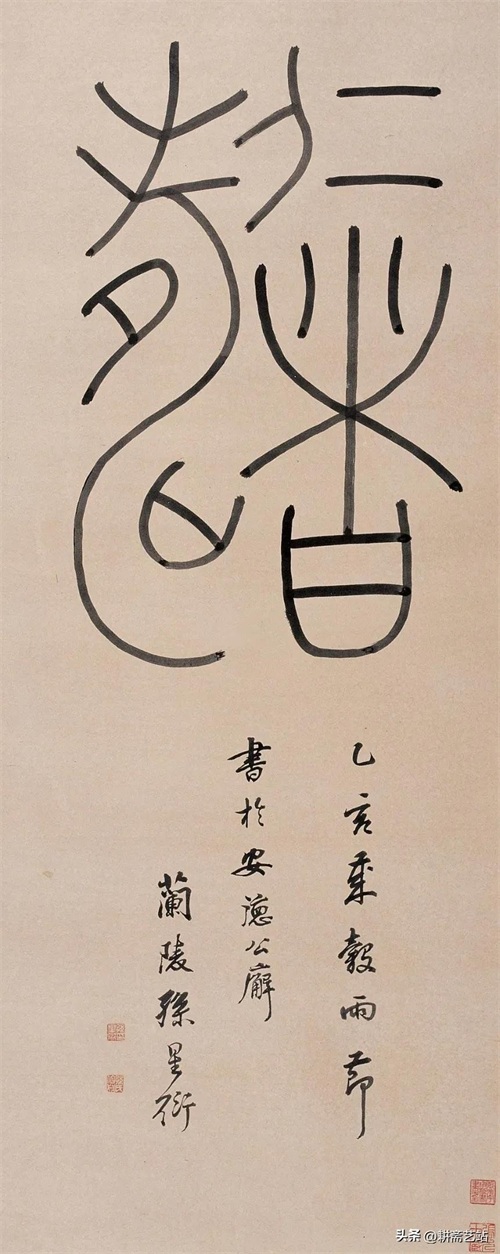 仁者
壽
乙亥年穀雨節
書於安德公廨
蘭陵孫星衍
头条 @耕斋艺站